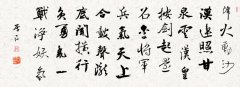 烽火動沙
漠連照甘
泉雲漢皇
按劍起還
召李將軍
兵氣天上
合鼓聲隴
底聞橫行
負勇氣一
戰淨妖氛